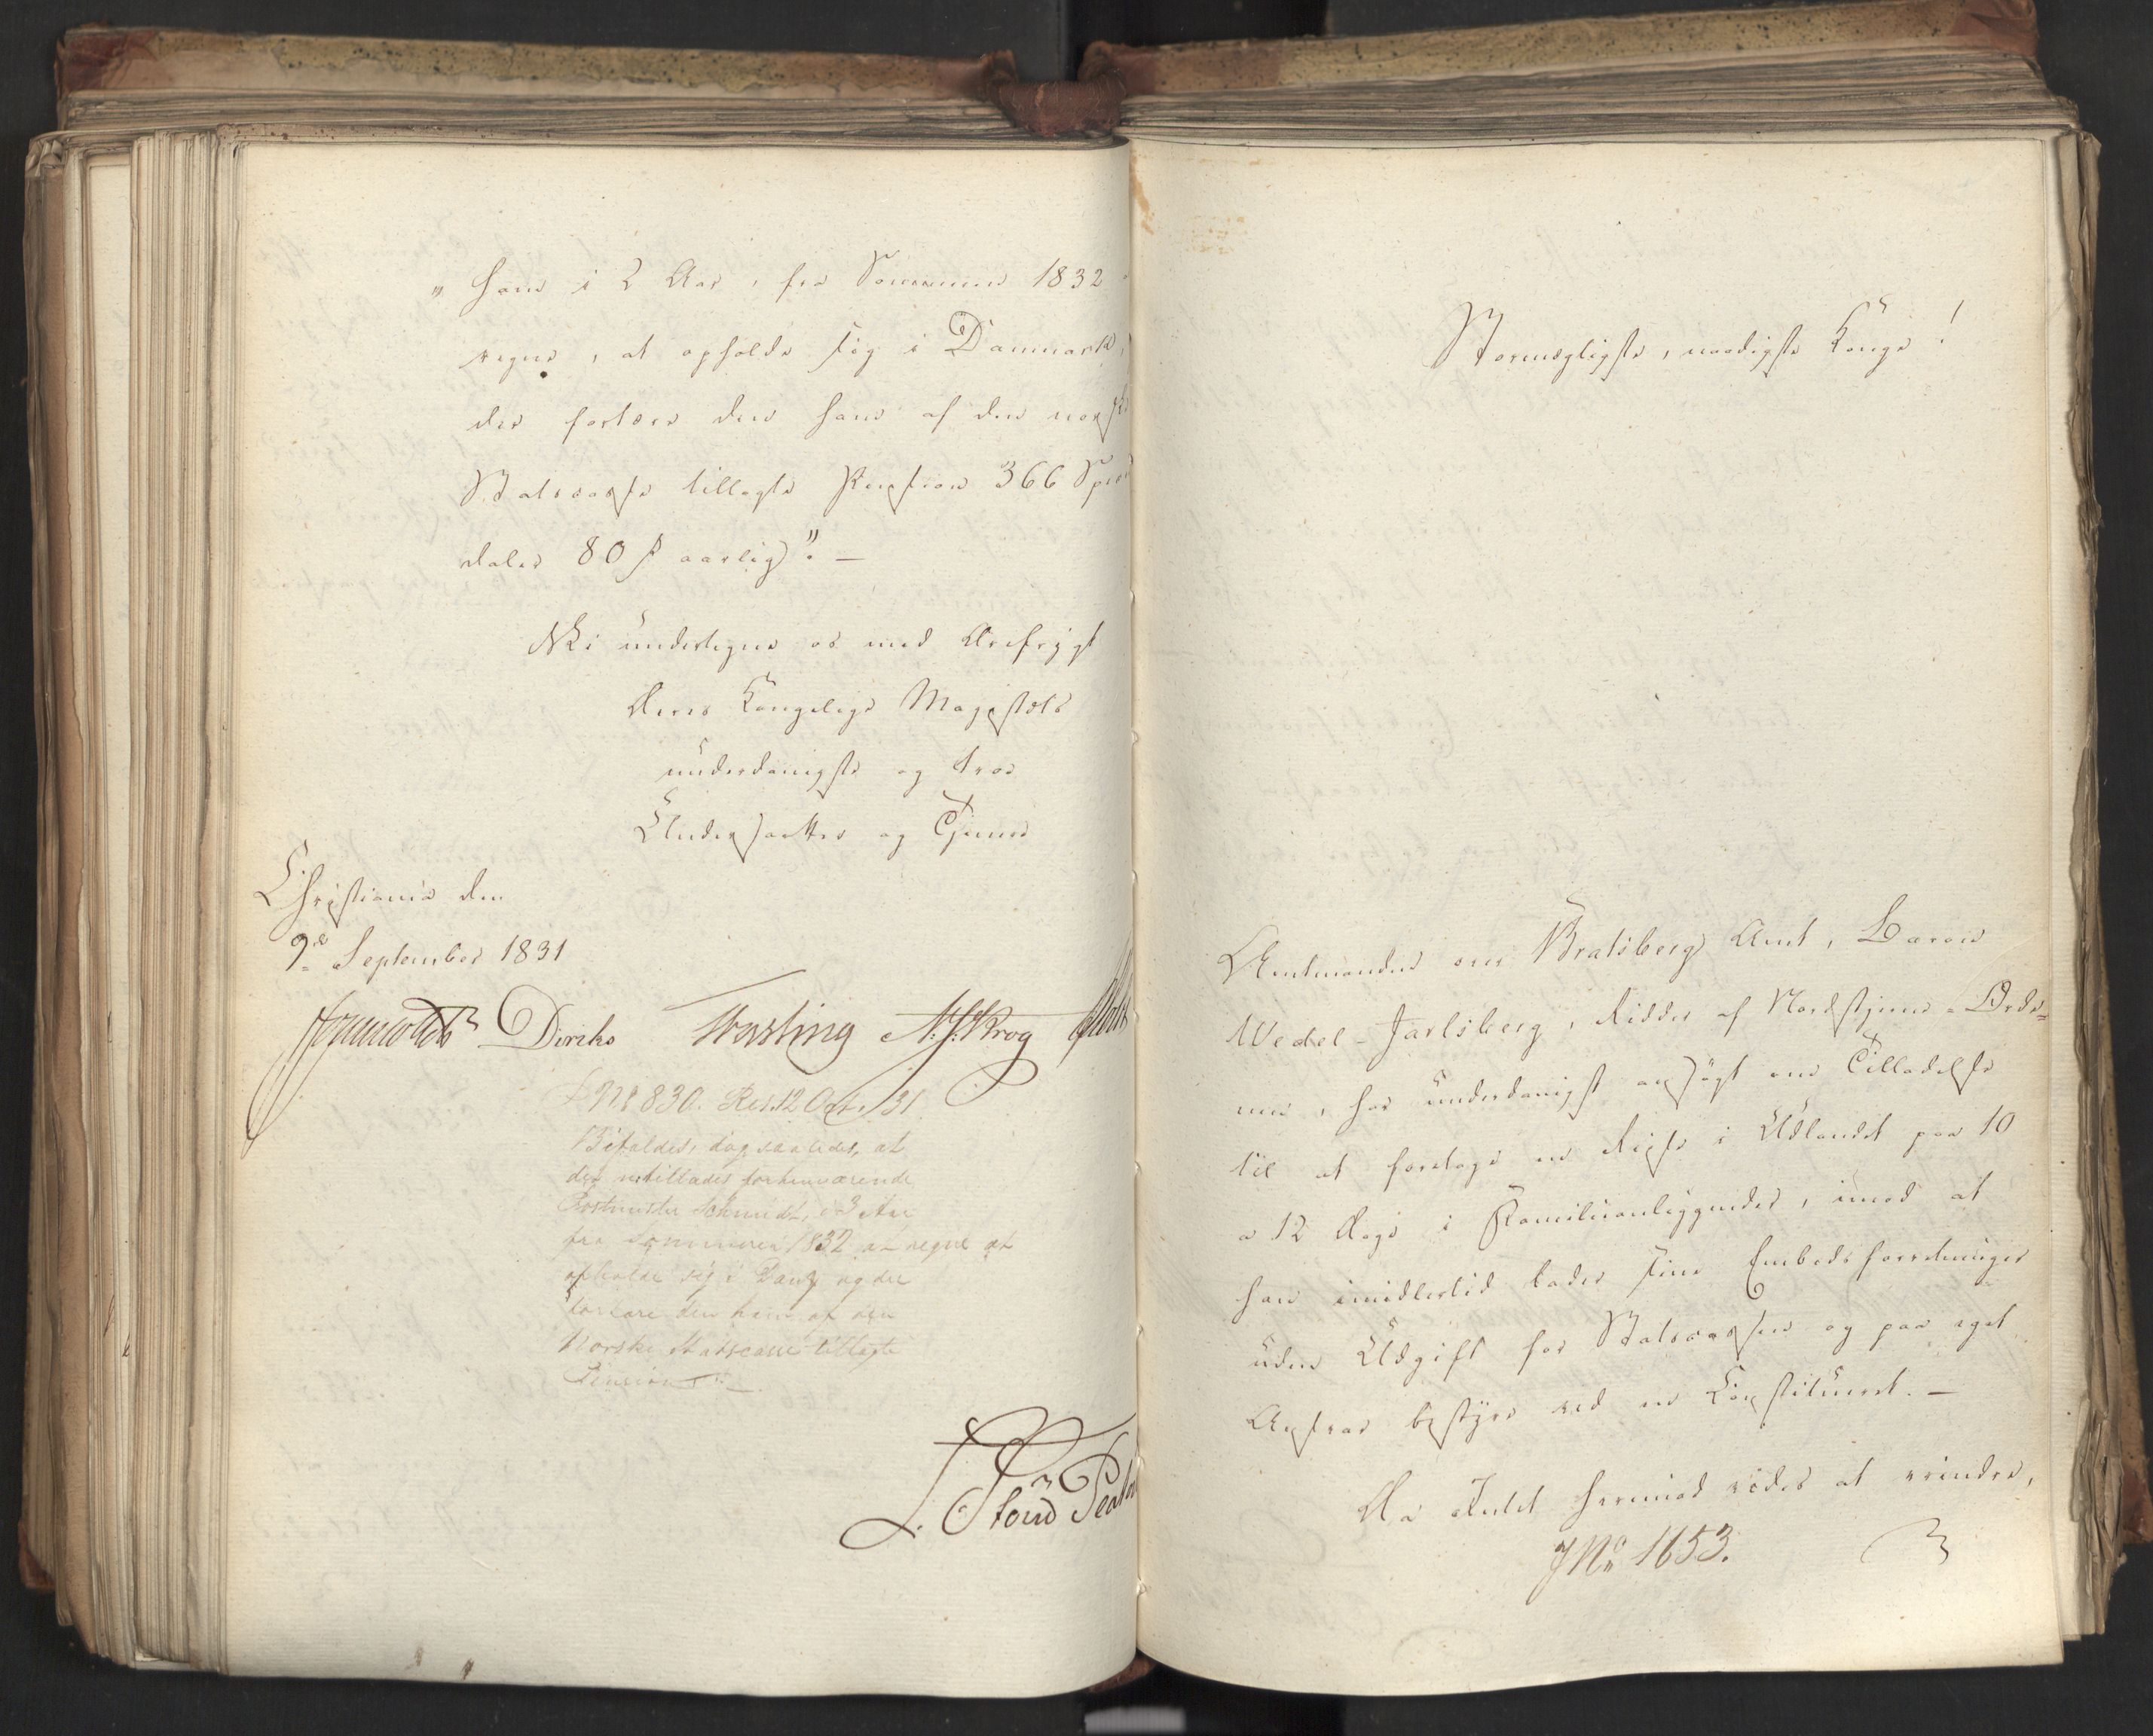 „ ham i 2 Aar, fra Sommeren 1832 at
regne, at opholde sig i Danmark,
der fortære den ham af den norske
Statscasse tillagte Pension 366 Specie
daler 80 ß aarlig”. —
Vi undertegne os med Ærefrygt
Deres Kongelige Majestæts
underdanigste og troe
Undersaatter og Tjenere
Christiania den
9de September 1831
Diriks Vogt M. J. Krog
No 830. Res. 12 Oct. 31
Bifaldes, dog saaledes, at
det tillades forhenværende
Postmester Schmidt, i 3 Aar
fra Sommeren 1832 at regne at
opholde sig i Danm. og der
fortære den ham af den
Norske Statscasse tillagte
Pension". —
Stormægtigste, naadigste Konge!
Amtmanden over Bratsberg Amt, Baron
Wedel-Jarlsberg, Ridder af Nordstjerne-Orde-
nen, har underdanigst ansøgt om Tilladelse
til at foretage en Reise i Udlandet paa 10
a 12 Dage i Familieanliggender, imod at
han imidlertid lader sine Embedsforretninger
uden Udgift for Statscassen og paa eget
Ansvar bestyre ved en Constitueret. —
Da Intet herimod vides at erindre,
JNo 1653.